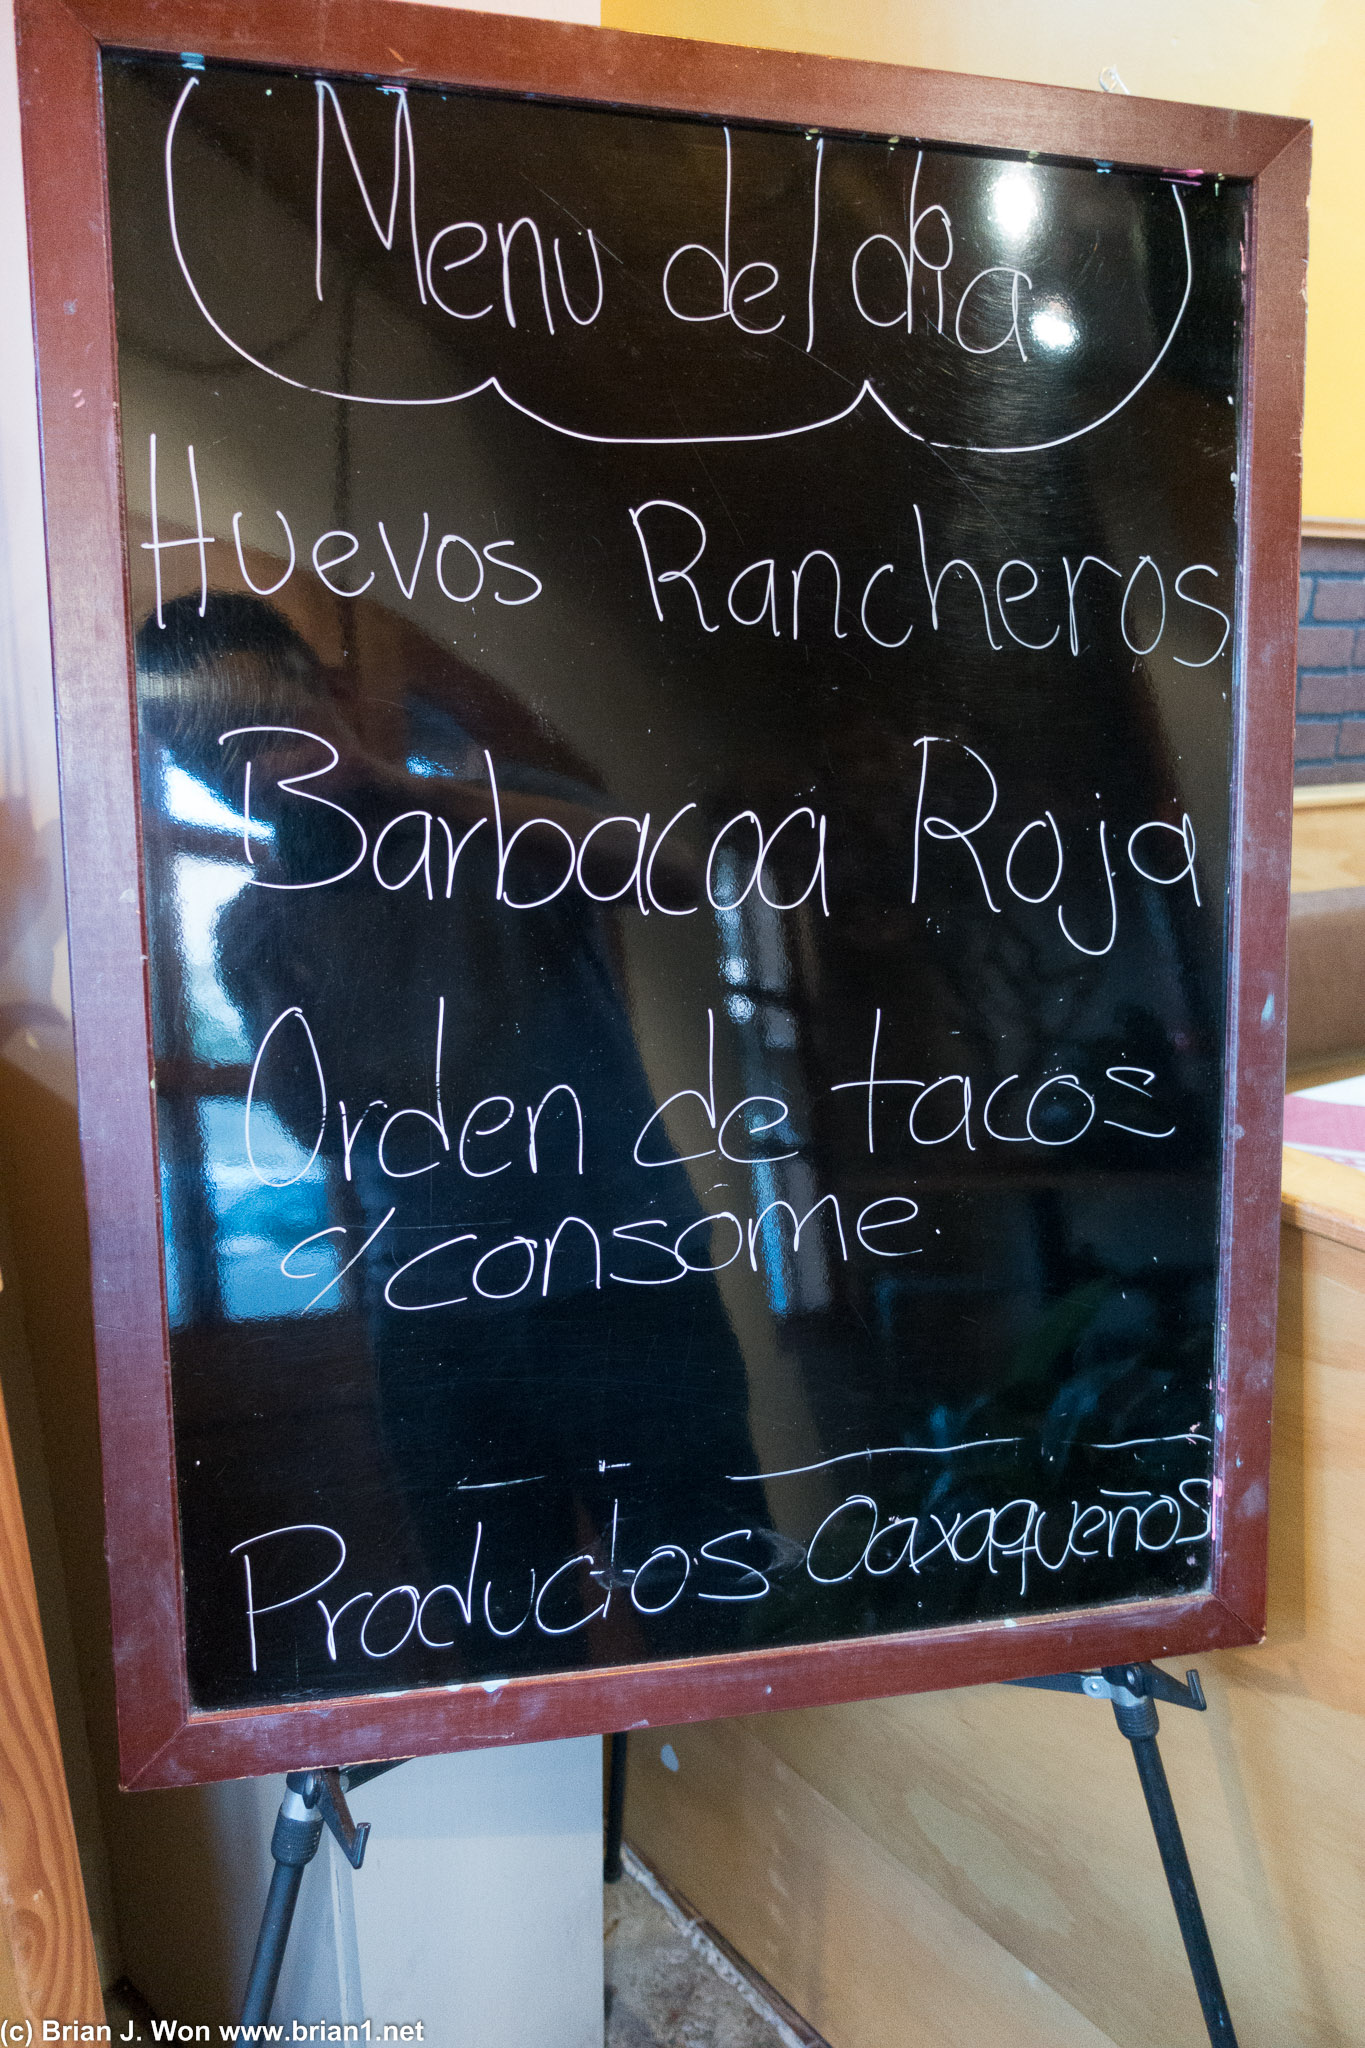 Menu del dia
Huevos Rancheros
Barbacoa Roja
Orden de tacos
c/consóme.
Productos Oaxaqueños
(c) Brian J. Won www.brian1.net